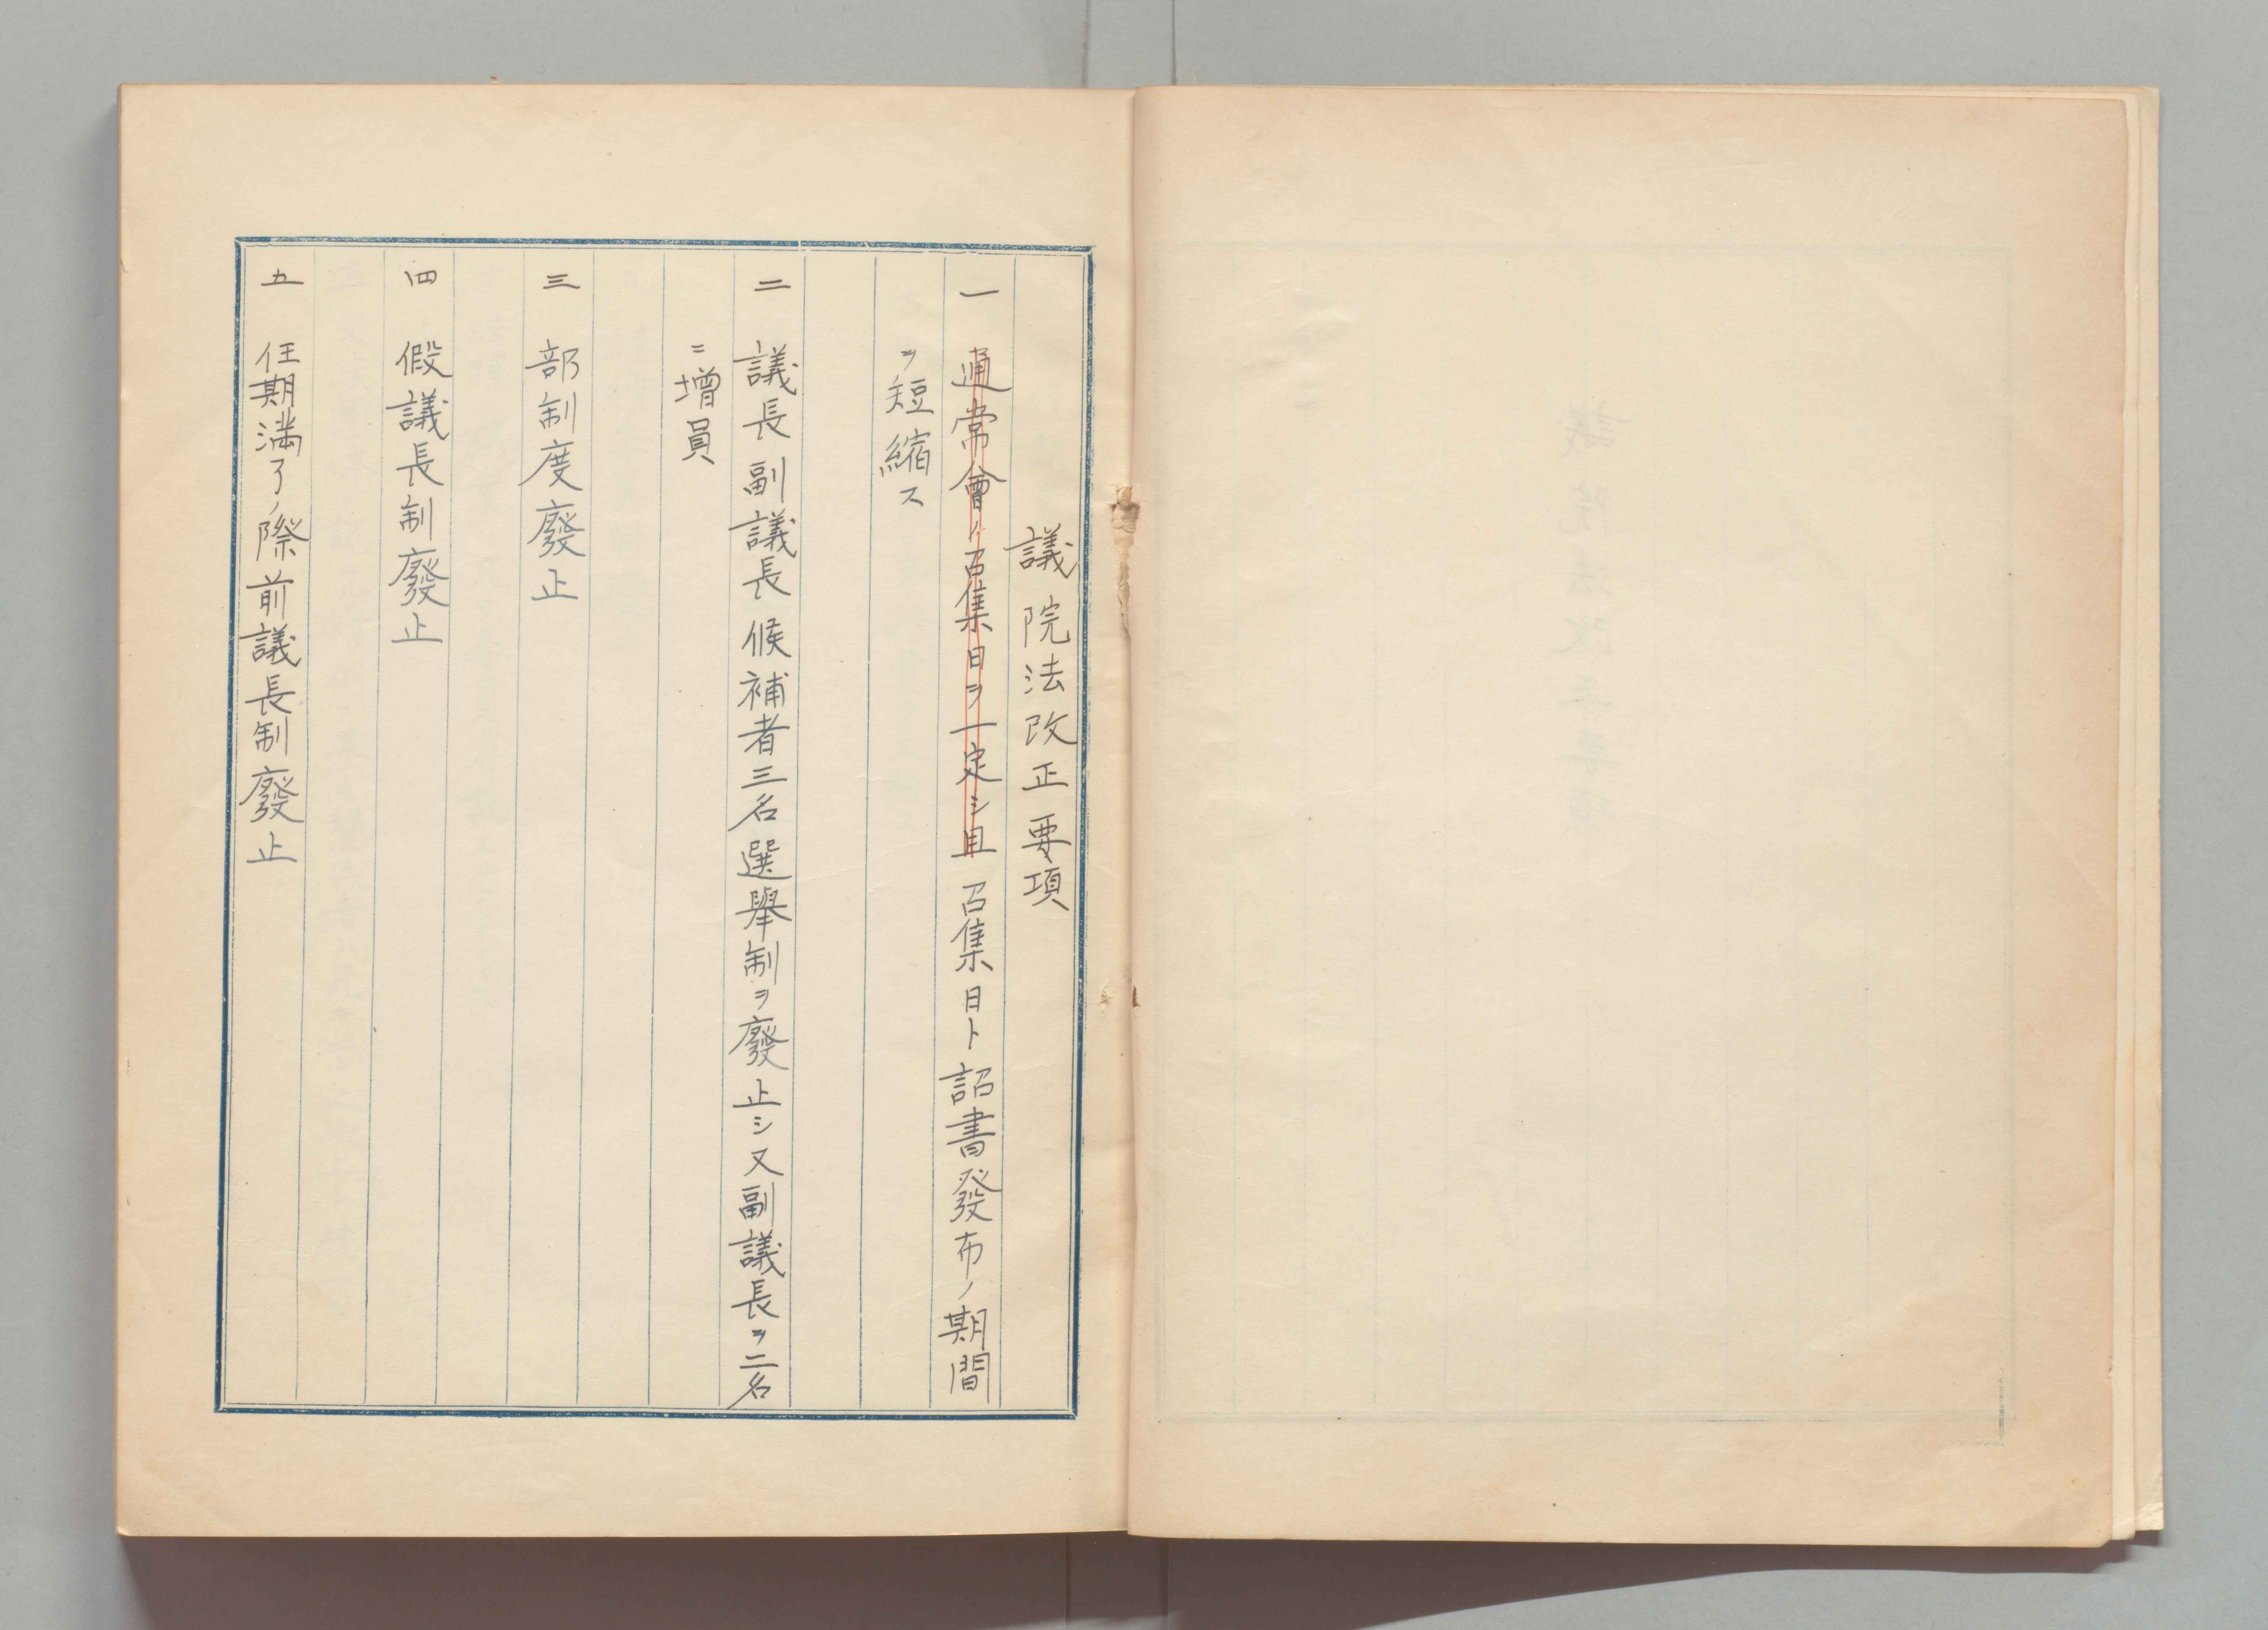 議院法改正要項
一 通常會ノ召集日ヲ一定シ且召集日ト詔書發布ノ期間
ヲ短縮ス
二 議長副議長候補者三名選擧制ヲ廢止シ又副議長ヲ二名
ニ増員
三 部制度廢止
四 假議長制廢止
五 任期満了ノ際前議長制廢止